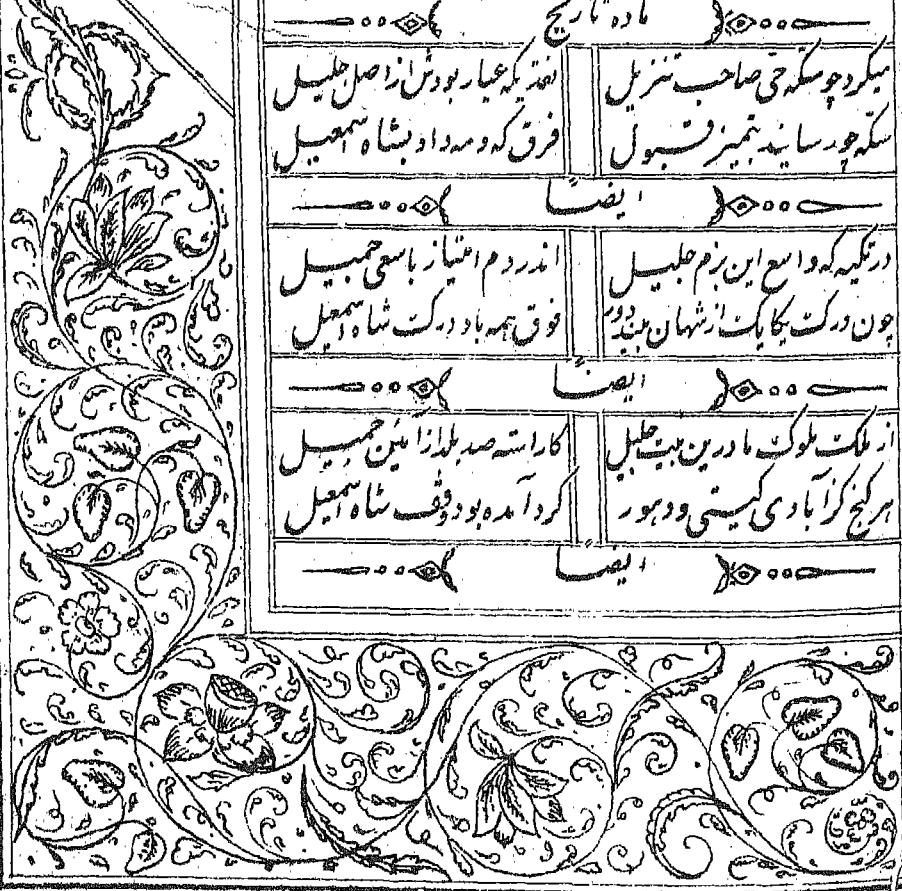 ماده تاریخ
میکرد چو سکه حی صاحب تنزیل نقدیکه عیار بودش از اصل جلیل
سکه چو رسانید بتمییز قبول فرق که ومه داد بشاه اسمعیل
ایضاً
در تکیه که واسع این بزم جلیل اندر دم امتیاز با سعی جمیل
چون درکت یکایک از شهان بیند دور فوق همه باد درکت شاه اسمعیل
ایضاً
از ملک ملوک ما درین بیت جلیل کاراسته صد بلد از آئین جمیل
هر کنج کز آبادی کیتی و دهور کرد آمده بود وقف شاه اسمعیل
ایضاً